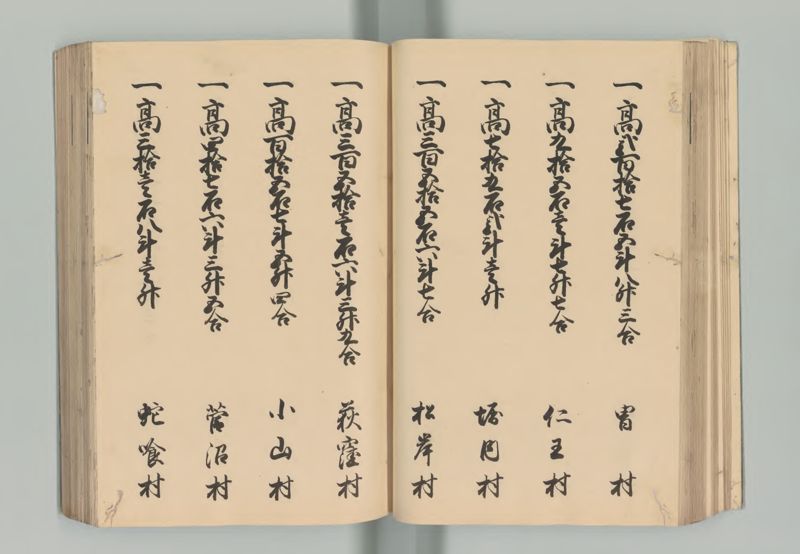 一高弐百拾七石五斗八升三合 冑村
一高九拾五石壱斗七升七合 仁王村
一高七拾五石弐斗壱升 堀切村
一高三百五拾五石六斗七合 松岸村
一高三百五拾壱石六斗三升九合 荻窪村
一高百拾五石七斗五升四合 小山村
一高四拾七石六斗三升五合 菅沼村
一高三拾壱石八斗壱升 蛇喰村